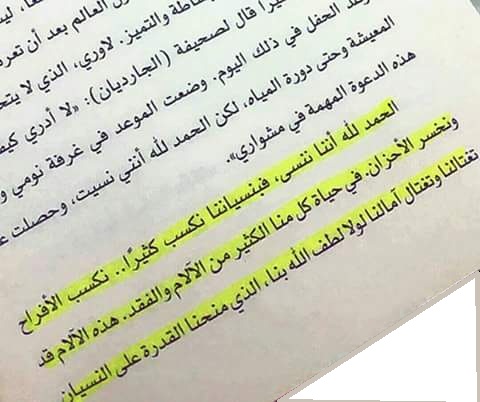 العالم بعد أن تعر
ساطة والتميز. لاوري، الذي لا يتح
عد الحفل في ذلك اليوم. وضعت الموعد في غرفة نومي و
يرًا قال لصحيفة (الجارديان): «لا أدري كيف
المعيشة وحتى دورة المياه، لكن الحمد لله أنني نسيت، وحصلت ع
هذه الدعوة المهمة في مشواري».
الحمد لله أننا ننسى، فبنسياننا نكسب كثيرًا.. نكسب الأفراح
ونخسر الأحزان. في حياة كل منا الكثير من الآلام والفقد. هذه الآلام قد
تغتالنا وتغتال آمالنا لولا لطف الله بنا، الذي منحنا القدرة على النسيان